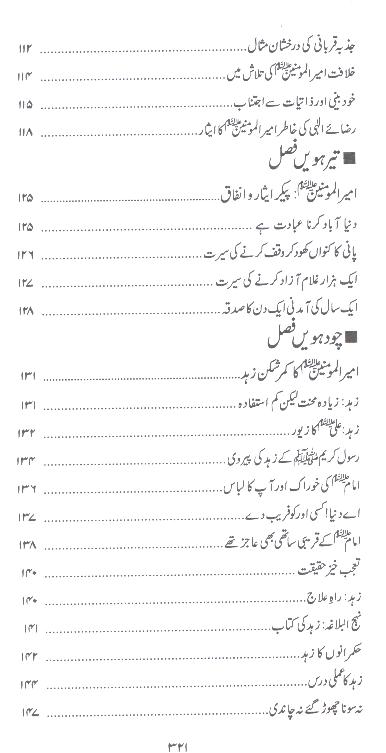 جذبہ قربانی کی درخشان مثال ........ ۱۱۲
خلافت امیر المومنینؑ کی تلاش میں ........ ۱۱۴
خود بینی اور ذاتیات سے اجتناب ........ ۱۱۵
رضائے الٰہی کی خاطر امیر المومنینؑ کا ایثار ........ ۱۱۸
■ تیرہویں فصل
امیر المومنینؑ: پیکر ایثار و انفاق ........ ۱۲۵
دنیا آباد کرنا عبادت ہے ........ ۱۲۵
پانی کا کنواں کھود کر وقف کرنے کی سیرت ........ ۱۲۶
ایک ہزار غلام آزاد کرنے کی سیرت ........ ۱۲۷
ایک سال کی آمدنی ایک دن کا صدقہ ........ ۱۲۸
■ چودہویں فصل
امیر المومنینؑ کا کمر شکن زہد ........ ۱۳۱
زہد: زیادہ محنت لیکن کم استفادہ ........ ۱۳۱
زہد: علیؑ کا زیور ........ ۱۳۲
رسول کریمﷺ کے زہد کی پیروی ........ ۱۳۴
امامؑ کی خوراک اور آپ کا لباس ........ ۱۳۶
اے دنیا! کسی اور کو فریب دے ........ ۱۳۷
امامؑ کے قریبی ساتھی بھی عاجز تھے ........ ۱۳۸
تعجب خیز حقیقت ........ ۱۴۰
زہد: راہِ علاج ........ ۱۴۰
نہج البلاغہ: زہد کی کتاب ........ ۱۴۱
حکمرانوں کا زہد ........ ۱۴۲
زہد کا عملی درس ........ ۱۴۴
نہ سونا چھوڑ گئے نہ چاندی ........ ۱۴۷
۳۲۱